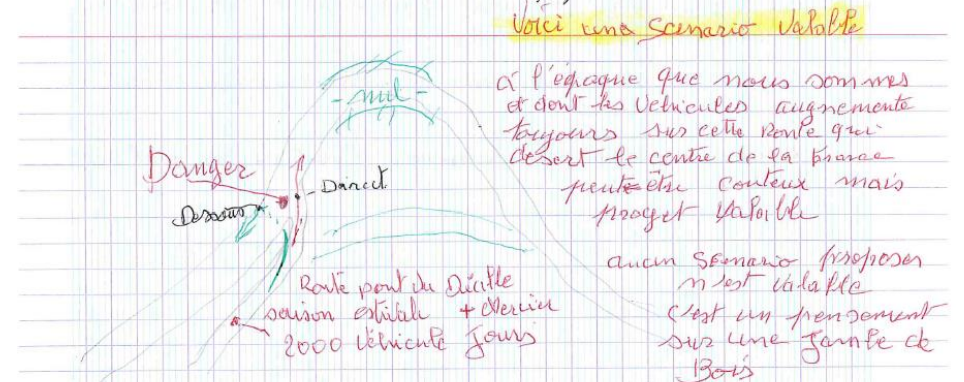 Voici une Scenario Valable
à l'épaque que nous sommes
et dont les Vehicules augnemente
toujours sur cette Route qui
désert le centre de la France
peut être couteux mais
proget Valoible
- nul -
Danger
- Direct
Dessous
aucun Scenario proposer
n'est valable
c'est un pensement
sur une Jambe de
Bois
Route pont du Diable
saison estivale +
2000 Véhicule Jours